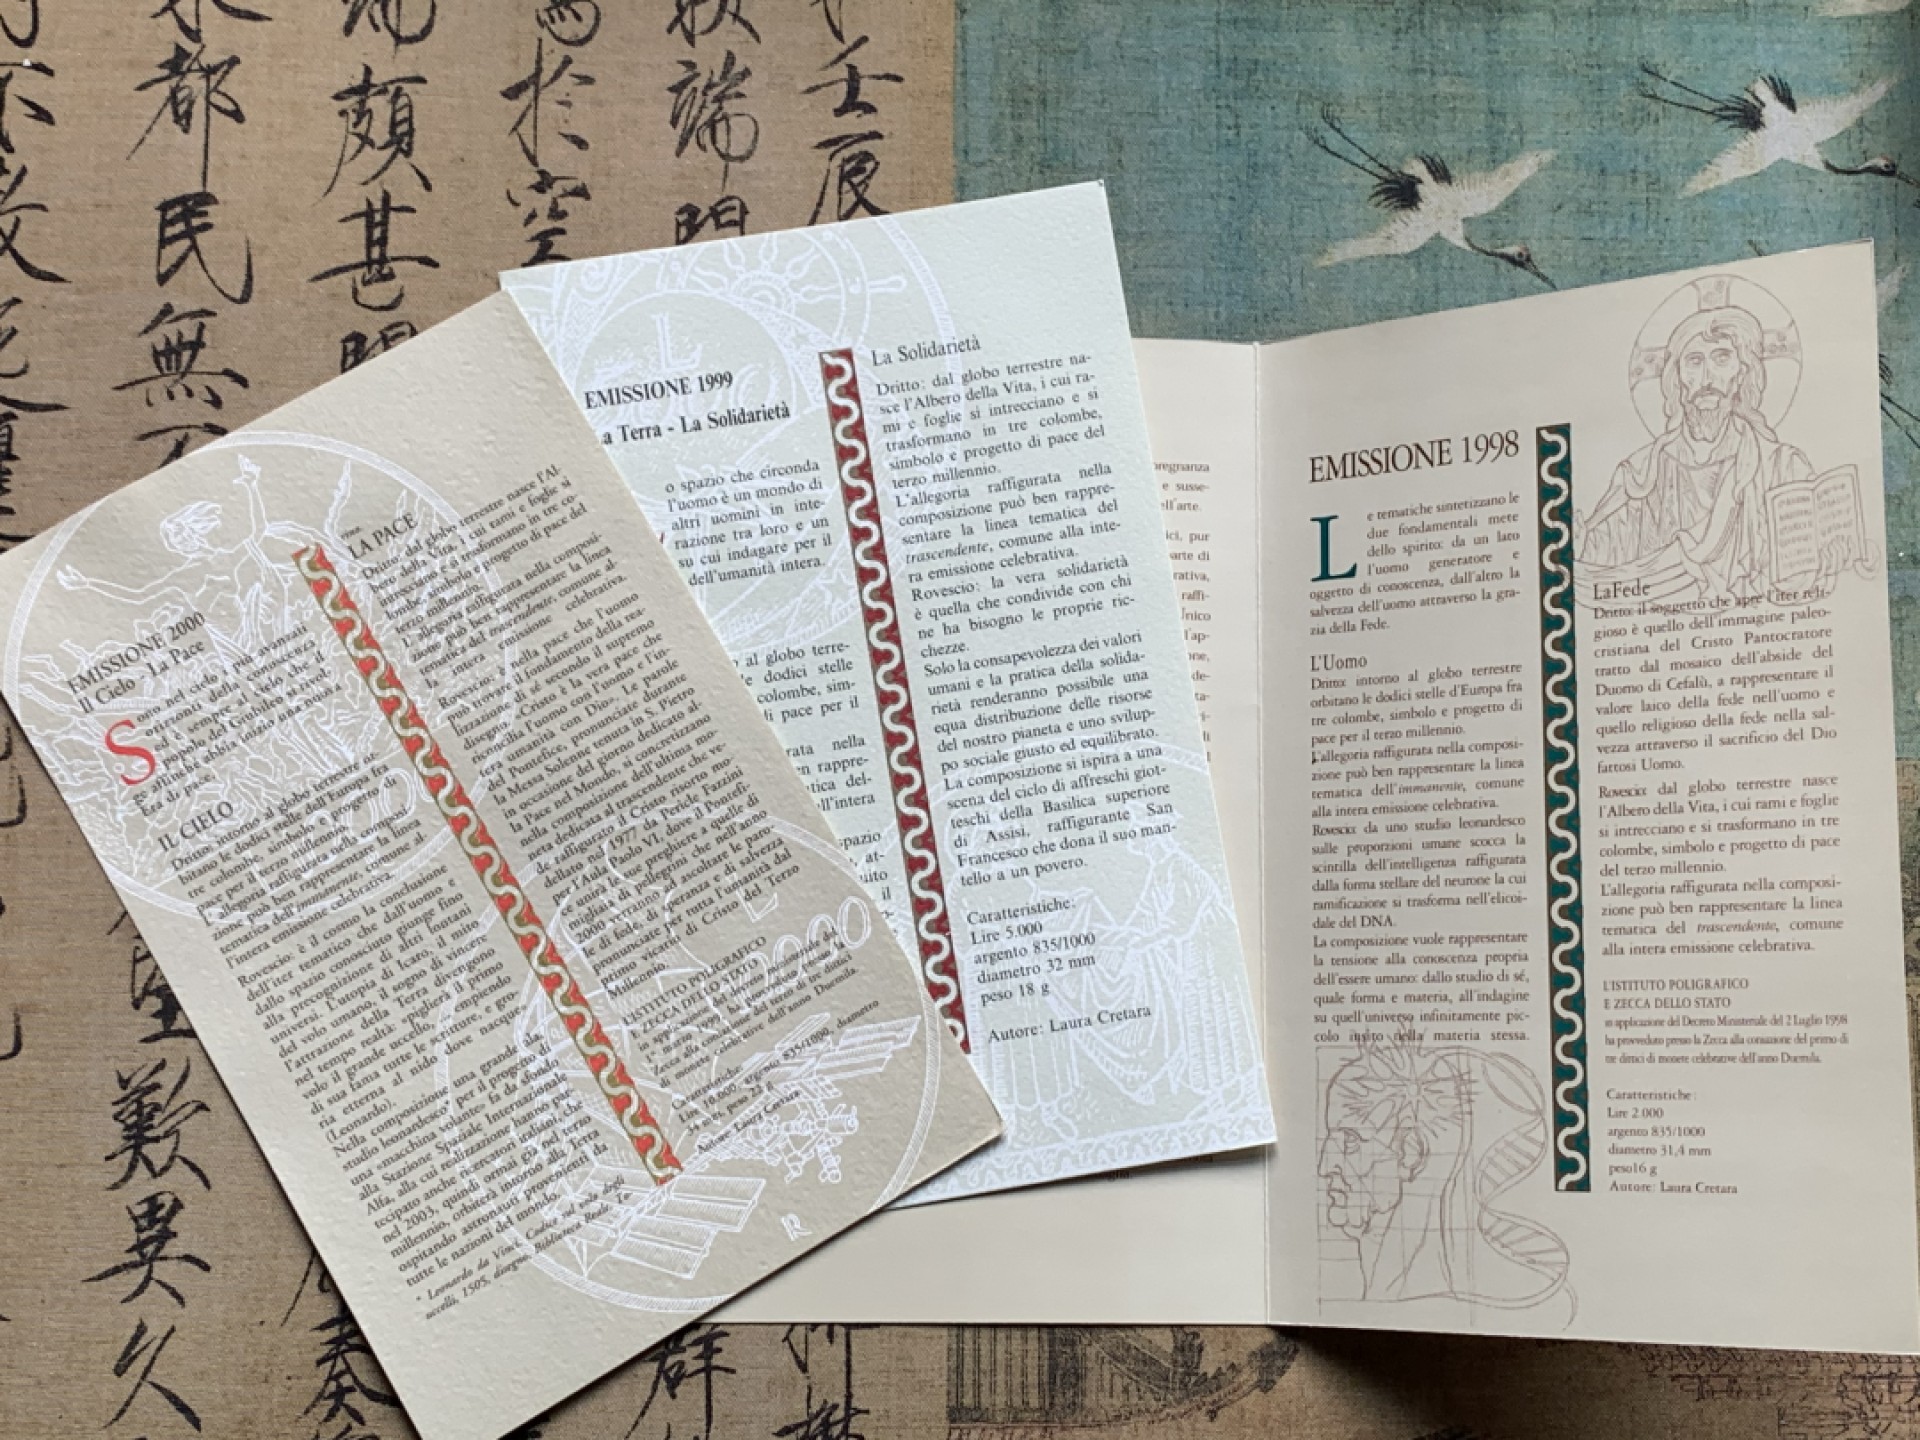 EMISSIONE 2000
Il Cielo - La Pace
Sono nel cielo i più avanzati
orizzonti della conoscenza
ed è sempre al cielo che il
popolo del Giubileo si rivol-
ge affinché abbia inizio una nuova
Era di pace.
IL CIELO
Dritto: intorno al globo terrestre or-
bitano le dodici stelle dell'Europa fra
tre colombe, simbolo e progetto di
pace per il terzo millennio.
L'allegoria raffigurata nella composi-
zione può ben rappresentare la linea
tematica dell'immanente, comune al-
l'intera emissione celebrativa.
Rovescio: è il cosmo la conclusione
dell'iter tematico che dall'uomo e
dallo spazio conosciuto giunge fino
alla precognizione di altri lontani
universi. L'utopia di Icaro, il mito
del volo umano, il sogno di vincere
l'attrazione della Terra divengono
nel tempo realtà: «piglierà il primo
volo il grande uccello, ... empiendo
di sua fama tutte le scritture, e glo-
ria etterna al nido dove nacque»
(Leonardo).
Nella composizione una grande ala,
studio leonardesco* per il progetto di
una «macchina volante» fa da sfondo
alla Stazione Spaziale Internazionale
Alfa, alla cui realizzazione hanno par-
tecipato anche ricercatori italiani, che
nel 2003, quindi ormai già nel terzo
millennio, orbiterà intorno alla Terra
ospitando astronauti provenienti da
tutte le nazioni del mondo.
* Leonardo da Vinci, Codice sul volo degli
uccelli, 1505, disegno, Biblioteca Reale, To
LA PACE
Dritto: dal globo terrestre nasce l'Al-
bero della Vita, i cui rami e foglie si
intrecciano e si trasformano in tre co-
lombe, simbolo e progetto di pace del
terzo millennio.
L'allegoria raffigurata nella composi-
zione può ben rappresentare la linea
tematica del trascendente, comune al-
la intera emissione celebrativa.
Rovescio: è nella pace che l'uomo
può trovare il fondamento della rea-
lizzazione di sé secondo il supremo
disegno. «Cristo è la vera pace che
riconcilia l'uomo con l'uomo e l'in-
tera umanità con Dio». Le parole
del Pontefice, pronunciate durante
la Messa Solenne tenuta in S. Pietro
in occasione del giorno dedicato al-
la Pace nel Mondo, si concretizzano
nella composizione dell'ultima mo-
neta dedicata al trascendente che ve-
de raffigurato il Cristo risorto mo-
dellato nel 1977 da Pericle Fazzini
per l'Aula Paolo VI, dove il Pontefi-
ce unirà le sue preghiere a quelle di
migliaia di pellegrini che nell'anno
2000 verranno ad ascoltare le paro-
le di fede, di speranza e di salvezza
pronunciate per tutta l'umanità dal
primo vicario di Cristo del Terzo
Millennio.
L'ISTITUTO POLIGRAFICO
E ZECCA DELLO STATO
in applicazione del decreto ministeriale del
1° marzo 1999, ha provveduto presso la
Zecca alla coniazione del terzo di tre dittici
di monete celebrative dell'anno Duemila.
Caratteristiche:
Lire 10.000, argento 835/1000, diametro
34 mm, peso 22 g
Autore: Laura Cretara
EMISSIONE 1999
a Terra - La Solidarietà
o spazio che circonda
l'uomo è un mondo di
altri uomini in inte-
razione tra loro e un
su cui indagare per il
dell'umanità intera.
al globo terre-
e dodici stelle
colombe, sim-
di pace per il
rata nella
en rappre-
tica del-
ll'intera
spazio
at-
uito
il
La Solidarietà
Dritto: dal globo terrestre na-
sce l'Albero della Vita, i cui ra-
mi e foglie si intrecciano e si
trasformano in tre colombe,
simbolo e progetto di pace del
terzo millennio.
L'allegoria raffigurata nella
composizione può ben rappre-
sentare la linea tematica del
trascendente, comune alla inte-
ra emissione celebrativa.
Rovescio: la vera solidarietà
è quella che condivide con chi
ne ha bisogno le proprie ric-
chezze.
Solo la consapevolezza dei valori
umani e la pratica della solida-
rietà renderanno possibile una
equa distribuzione delle risorse
del nostro pianeta e uno svilup-
po sociale giusto ed equilibrato.
La composizione si ispira a una
scena del ciclo di affreschi giot-
teschi della Basilica superiore
di Assisi, raffigurante San
Francesco che dona il suo man-
tello a un povero.
Caratteristiche:
Lire 5.000
argento 835/1000
diametro 32 mm
peso 18 g
Autore: Laura Cretara
pregnanza
e susse-
ell'arte.
ici, pur
arte di
rativa,
raffi-
Unico
l'ap-
EMISSIONE 1998
Le tematiche sintetizzano le
due fondamentali mete
dello spirito: da un lato
l'uomo generatore e
oggetto di conoscenza, dall'altro la
salvezza dell'uomo attraverso la gra-
zia della Fede.
L'Uomo
Dritto: intorno al globo terrestre
orbitano le dodici stelle d'Europa fra
tre colombe, simbolo e progetto di
pace per il terzo millennio.
L'allegoria raffigurata nella composi-
zione può ben rappresentare la linea
tematica dell'immanente, comune
alla intera emissione celebrativa.
Rovescio: da uno studio leonardesco
sulle proporzioni umane scocca la
scintilla dell'intelligenza raffigurata
dalla forma stellare del neurone la cui
ramificazione si trasforma nell'elicoi-
dale del DNA.
La composizione vuole rappresentare
la tensione alla conoscenza propria
dell'essere umano: dallo studio di sé,
quale forma e materia, all'indagine
su quell'universo infinitamente pic-
colo insito nella materia stessa.
LaFede
Dritto: il soggetto che apre l'iter reli-
gioso è quello dell'immagine paleo-
cristiana del Cristo Pantocratore
tratto dal mosaico dell'abside del
Duomo di Cefalù, a rappresentare il
valore laico della fede nell'uomo e
quello religioso della fede nella sal-
vezza attraverso il sacrificio del Dio
fattosi Uomo.
Rovescio: dal globo terrestre nasce
l'Albero della Vita, i cui rami e foglie
si intrecciano e si trasformano in tre
colombe, simbolo e progetto di pace
del terzo millennio.
L'allegoria raffigurata nella composi-
zione può ben rappresentare la linea
tematica del trascendente, comune
alla intera emissione celebrativa.
L'ISTITUTO POLIGRAFICO
E ZECCA DELLO STATO
in applicazione del Decreto Ministeriale del 2 Luglio 1998
ha provveduto presso la Zecca alla coniazione del primo di
tre dittici di monete celebrative dell'anno Duemila.
Caratteristiche:
Lire 2.000
argento 835/1000
diametro 31,4 mm
peso16 g
Autore: Laura Cretara
壬辰
端門
於空
端
頗甚
都民無
歎異久
群